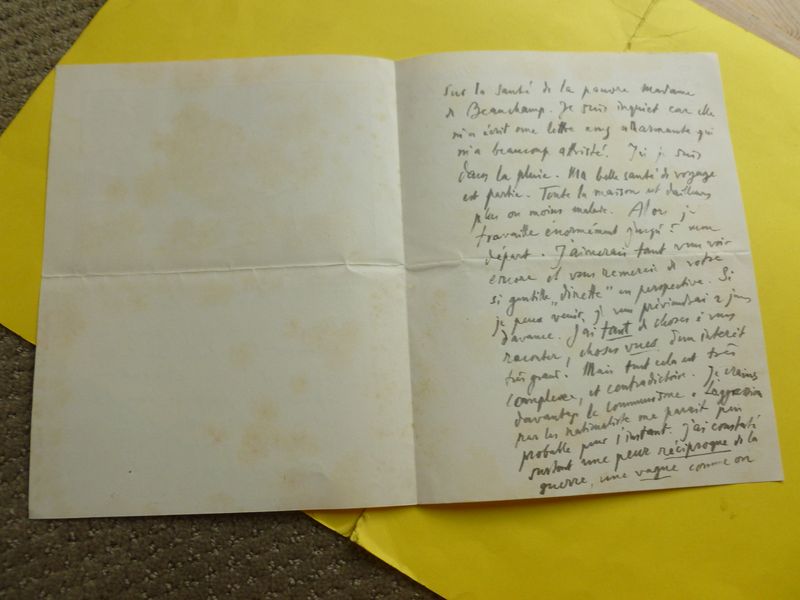 sur la santé de la pauvre Madame
de Beauchamp. Je suis inquiet car elle
m'a écrit une lettre assez alarmante qui
m'a beaucoup attristé. Ici je suis
dans la pluie. Ma belle santé de voyage
est partie. Toute la maison est d'ailleurs
plus ou moins malade. Alors je
travaille énormément jusqu'à mon
départ. J'aimerais tant vous voir
encore et vous remercier de votre
si gentille "dinette" en perspective. Si
je peux venir, je vous préviendrai 2 jours
d'avance. J'ai tant de choses à vous
raconter! choses vues d'un intérêt
très grand. Mais tout cela est très
complexe, et contradictoire. Je crains
davantage le communisme. L'aggression
par les nationalistes me parait peu
probable pour l'instant. J'ai constaté
surtout une peur réciproque de la
guerre, une vague comme on